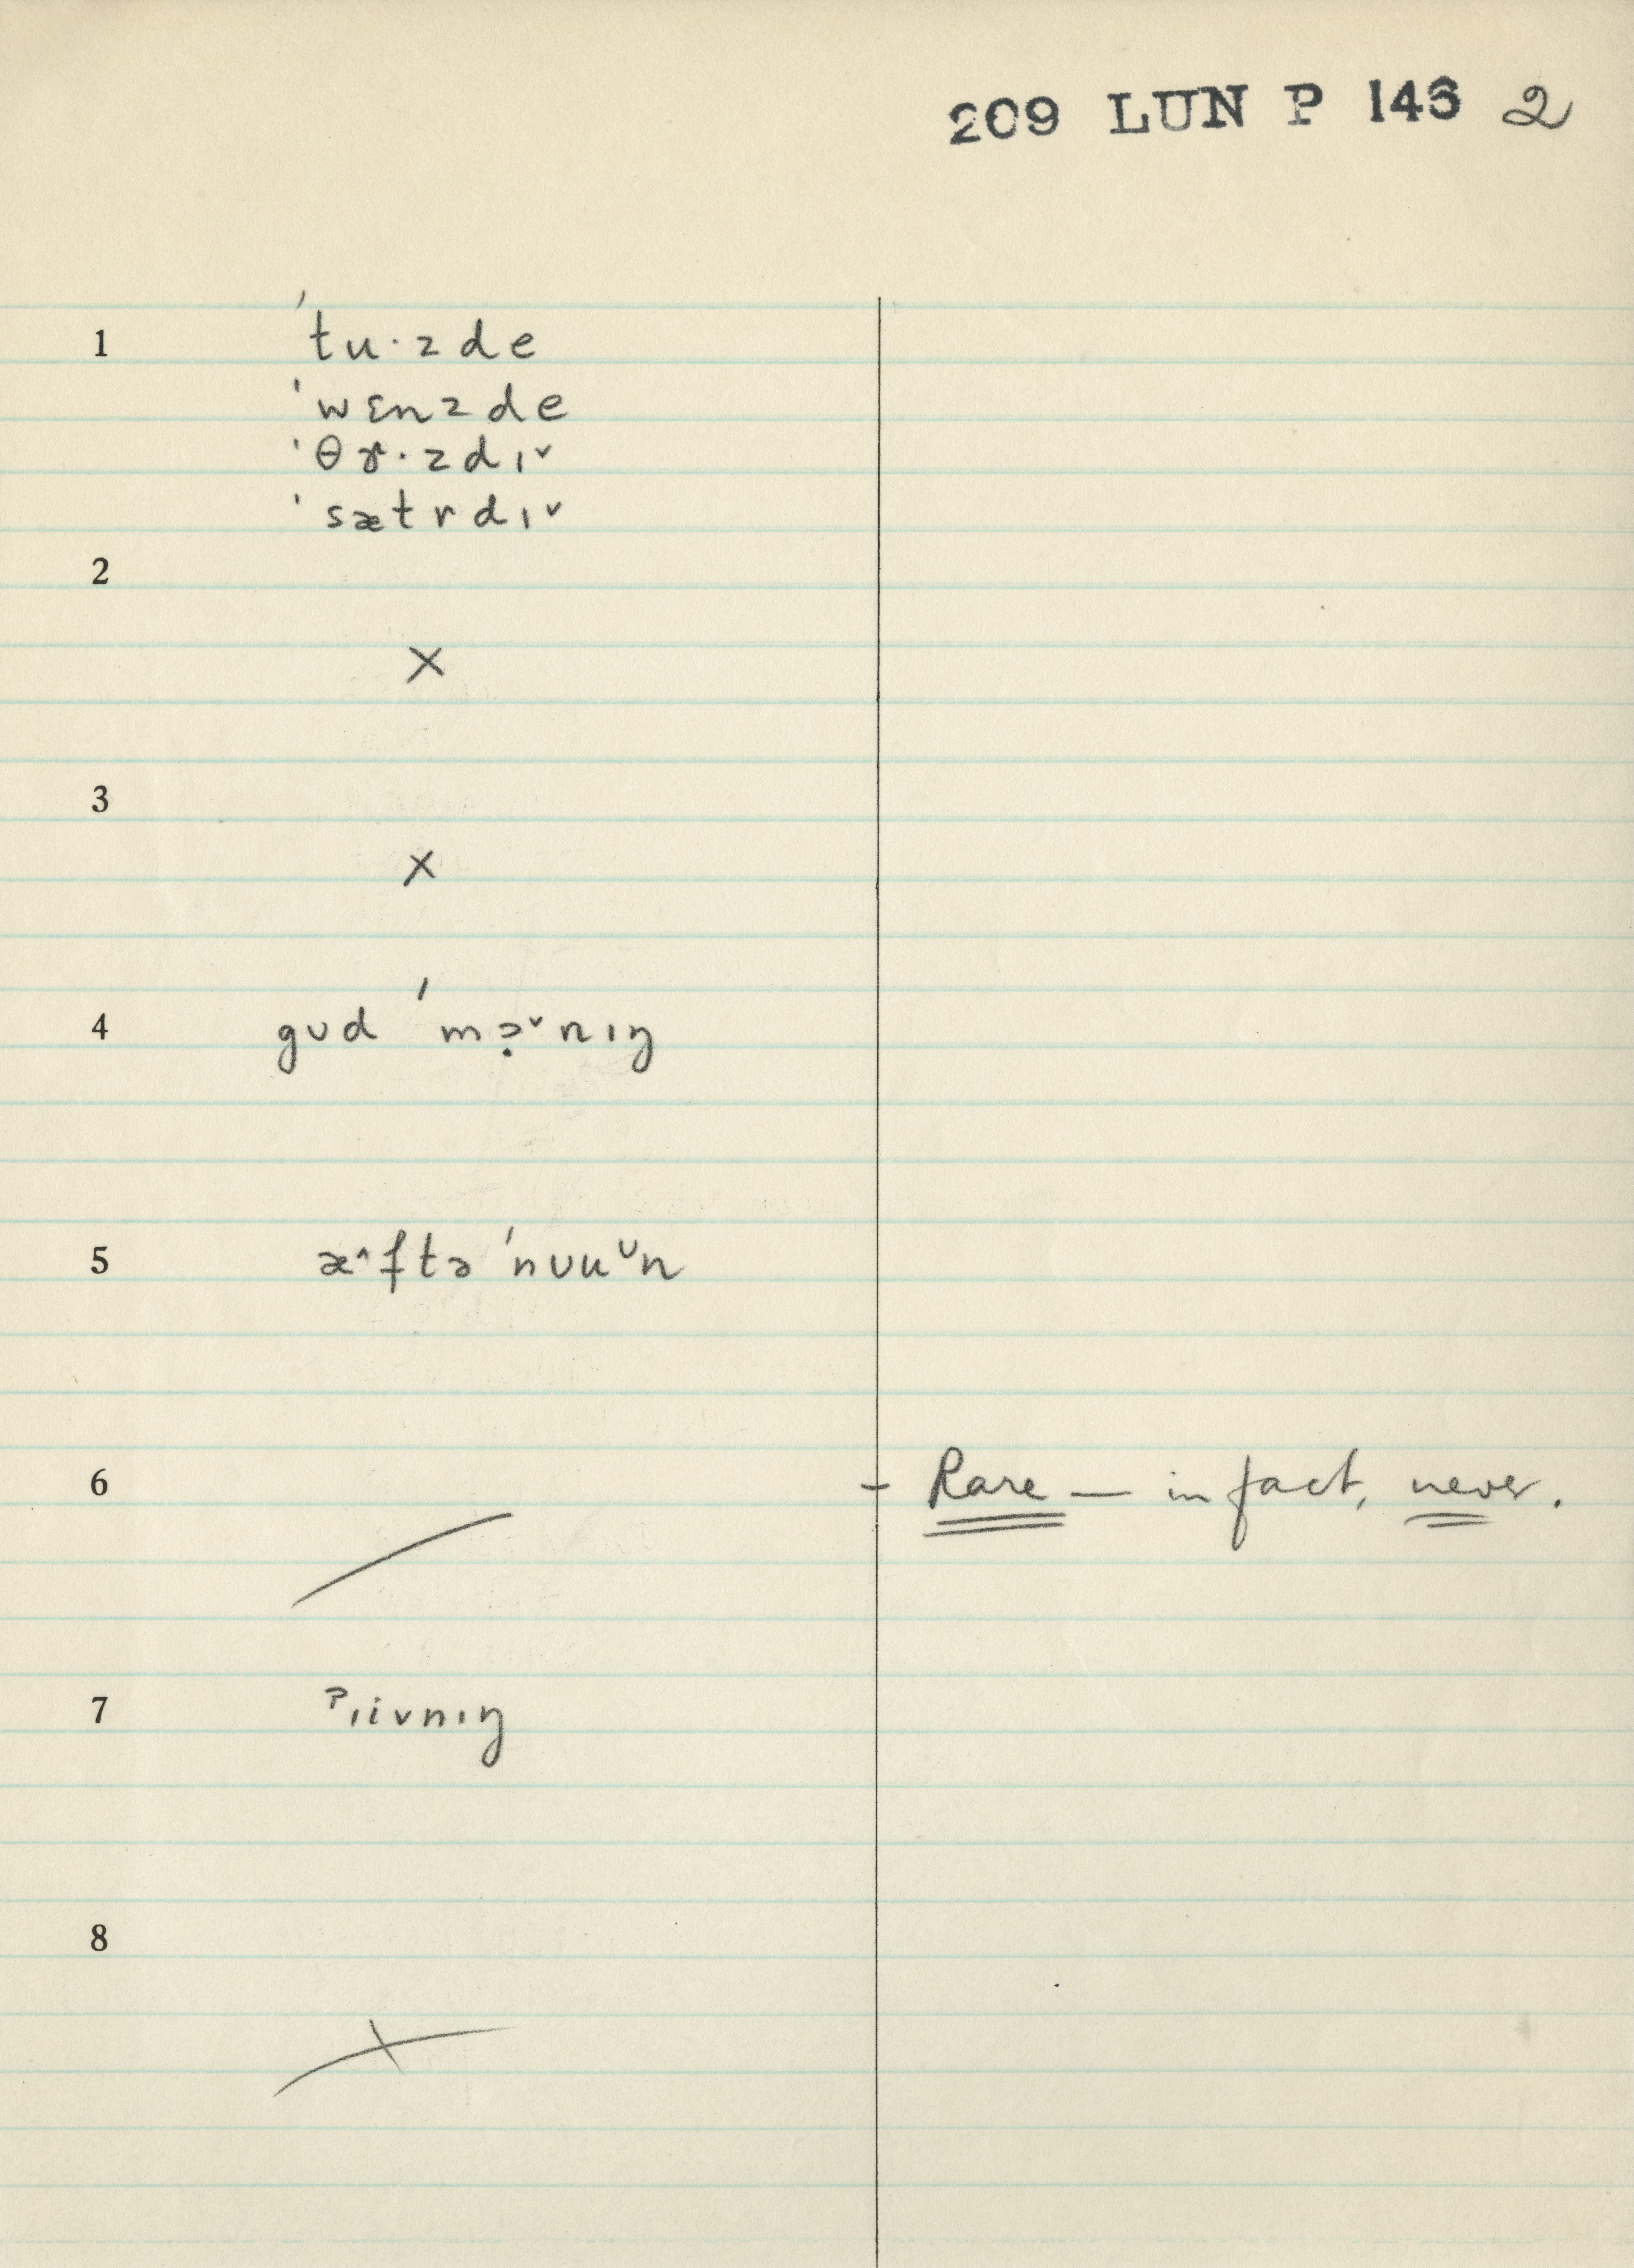 209 LUN P 146 2
1 ˈtu·zde
ˈwɛnzde
ˈθɤ·zdɪ˅
ˈsætrdɪ˅
2
×
3
×
4 gʊd ˈmɔ̣˅nɪŋ
5 æ^ftə ˈnʊu˅n
6 - Rare — in fact, never.
7 ˀɪivnɪŋ
8
×